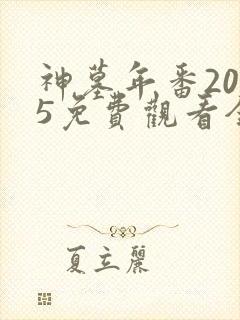 神墓年番20
5免費觀看全
夏立麗